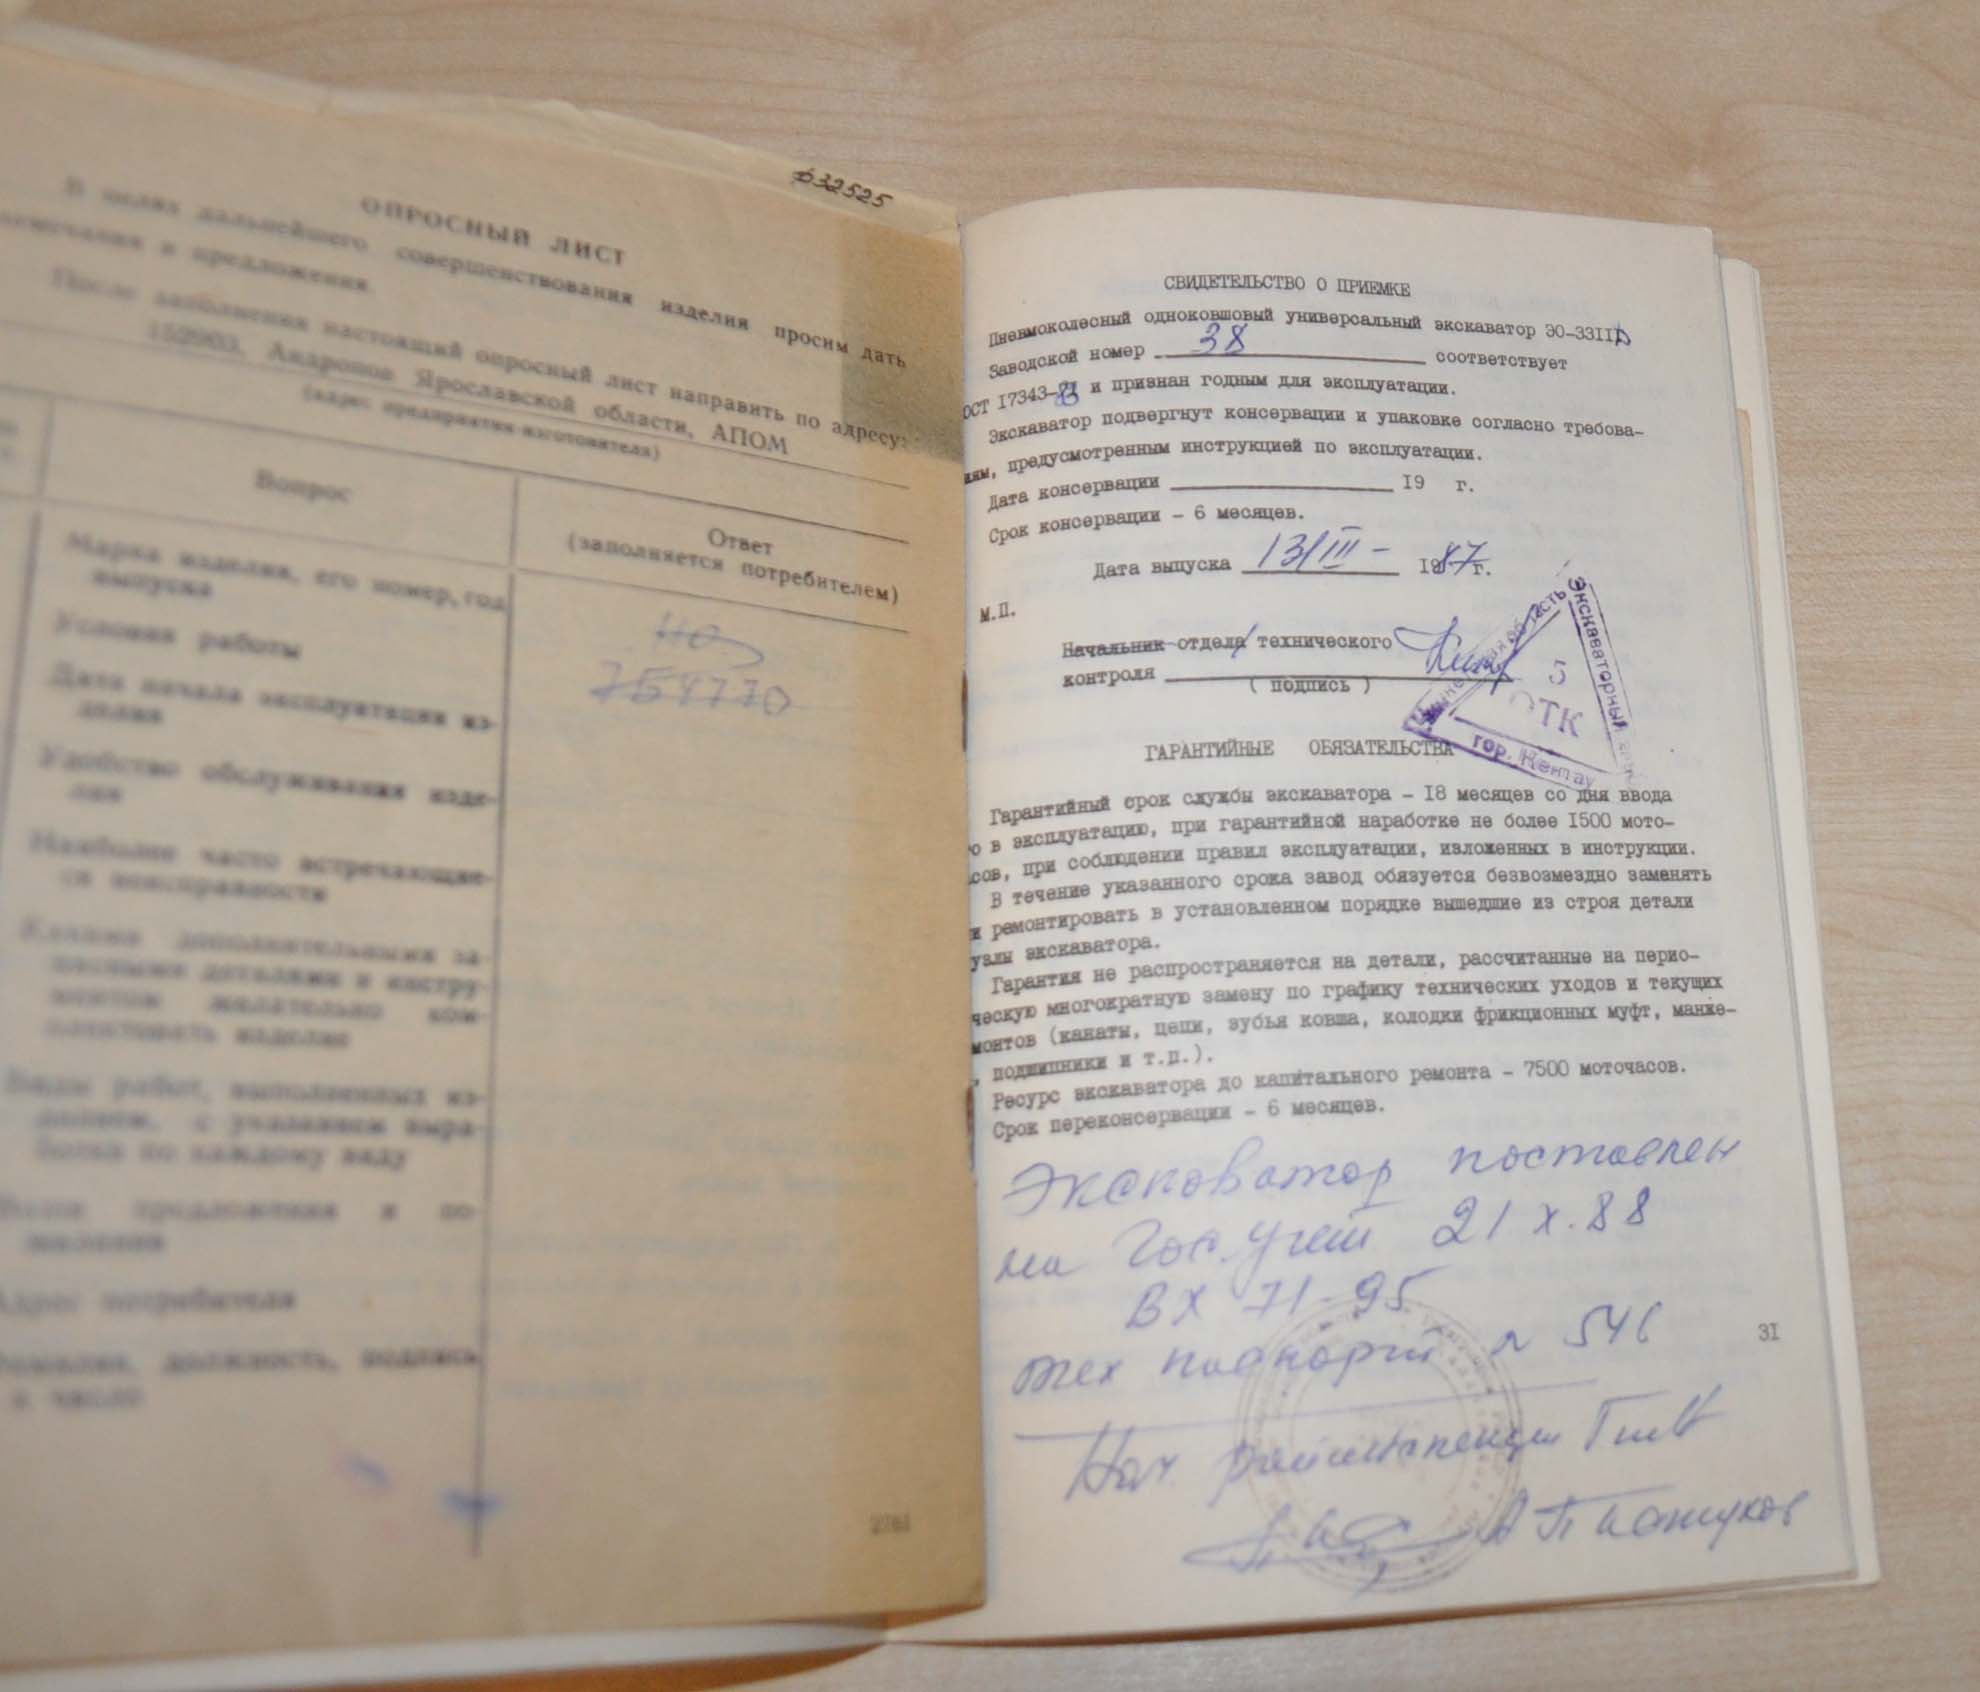 ф32525
ОПРОСНЫЙ ЛИСТ
В целях дальнейшего совершенствования изделия просим дать
замечания и предложения.
После заполнения настоящий опросный лист направить по адресу:
152903, Андропов Ярославской области, АПОМ
(адрес предприятия-изготовителя)
Вопрос
Ответ
(заполняется потребителем)
Марка изделия, его номер, год
выпуска
Условия работы
Дата начала эксплуатации из-
делия
Удобство обслуживания изде-
лия
Наиболее часто встречающие-
ся неисправности
Какими дополнительными за-
пасными деталями и инстру-
ментом желательно ком-
плектовать изделие
Виды работ, выполненных из-
делием, с указанием выра-
ботки по каждому виду
Ваши предложения и по-
желания
Адрес потребителя
Фамилия, должность, подпись
и число
754770
СВИДЕТЕЛЬСТВО О ПРИЕМКЕ
Пневмоколесный одноковшовый универсальный экскаватор ЭО-3311
Заводской номер 38 соответствует
ОСТ 17343- и признан годным для эксплуатации.
Экскаватор подвергнут консервации и упаковке согласно требова-
иям, предусмотренным инструкцией по эксплуатации.
Дата консервации 19 г.
Срок консервации - 6 месяцев.
Дата выпуска 13/III - 1987 г.
М.П.
Начальник отдела технического
контроля
( подпись )
Экскаваторный
5
ОТК
гор. Кентау
ГАРАНТИЙНЫЕ ОБЯЗАТЕЛЬСТВА
Гарантийный срок службы экскаватора - 18 месяцев со дня ввода
го в эксплуатацию, при гарантийной наработке не более 1500 мото-
асов, при соблюдении правил эксплуатации, изложенных в инструкции.
В течение указанного срока завод обязуется безвозмездно заменять
и ремонтировать в установленном порядке вышедшие из строя детали
узлы экскаватора.
Гарантия не распространяется на детали, рассчитанные на перио-
ческую многократную замену по графику технических уходов и текущих
монтов (канаты, цепи, зубья ковша, колодки фрикционных муфт, манже-
, подшипники и т.п.).
Ресурс экскаватора до капитального ремонта - 7500 моточасов.
Срок переконсервации - 6 месяцев.
Эксковатор поставлен
на Гос. учет 21 X.88
ВХ 71-95
тех паспорт N 546
31
Нач. райинспекции
А П